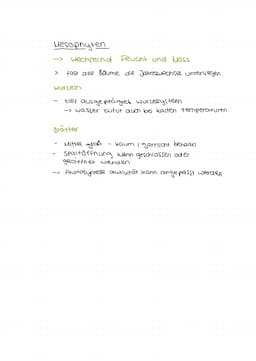 Mesophyten
→ wechselnd feucht und nass
> fast alle Bäume die Jahreswechsel unterliegen
Wurzeln
- tief ausgeprägtes Wurzelsystem
→ Wasser zufuhr auch bei kalten Temperaturen
Blätter
- Mittel groß - kaum / garnicht behaart
- Spaltöffnung kann geschlossen oder
geöffnet werden
→ Photosynthese aktivität kann angepasst werden